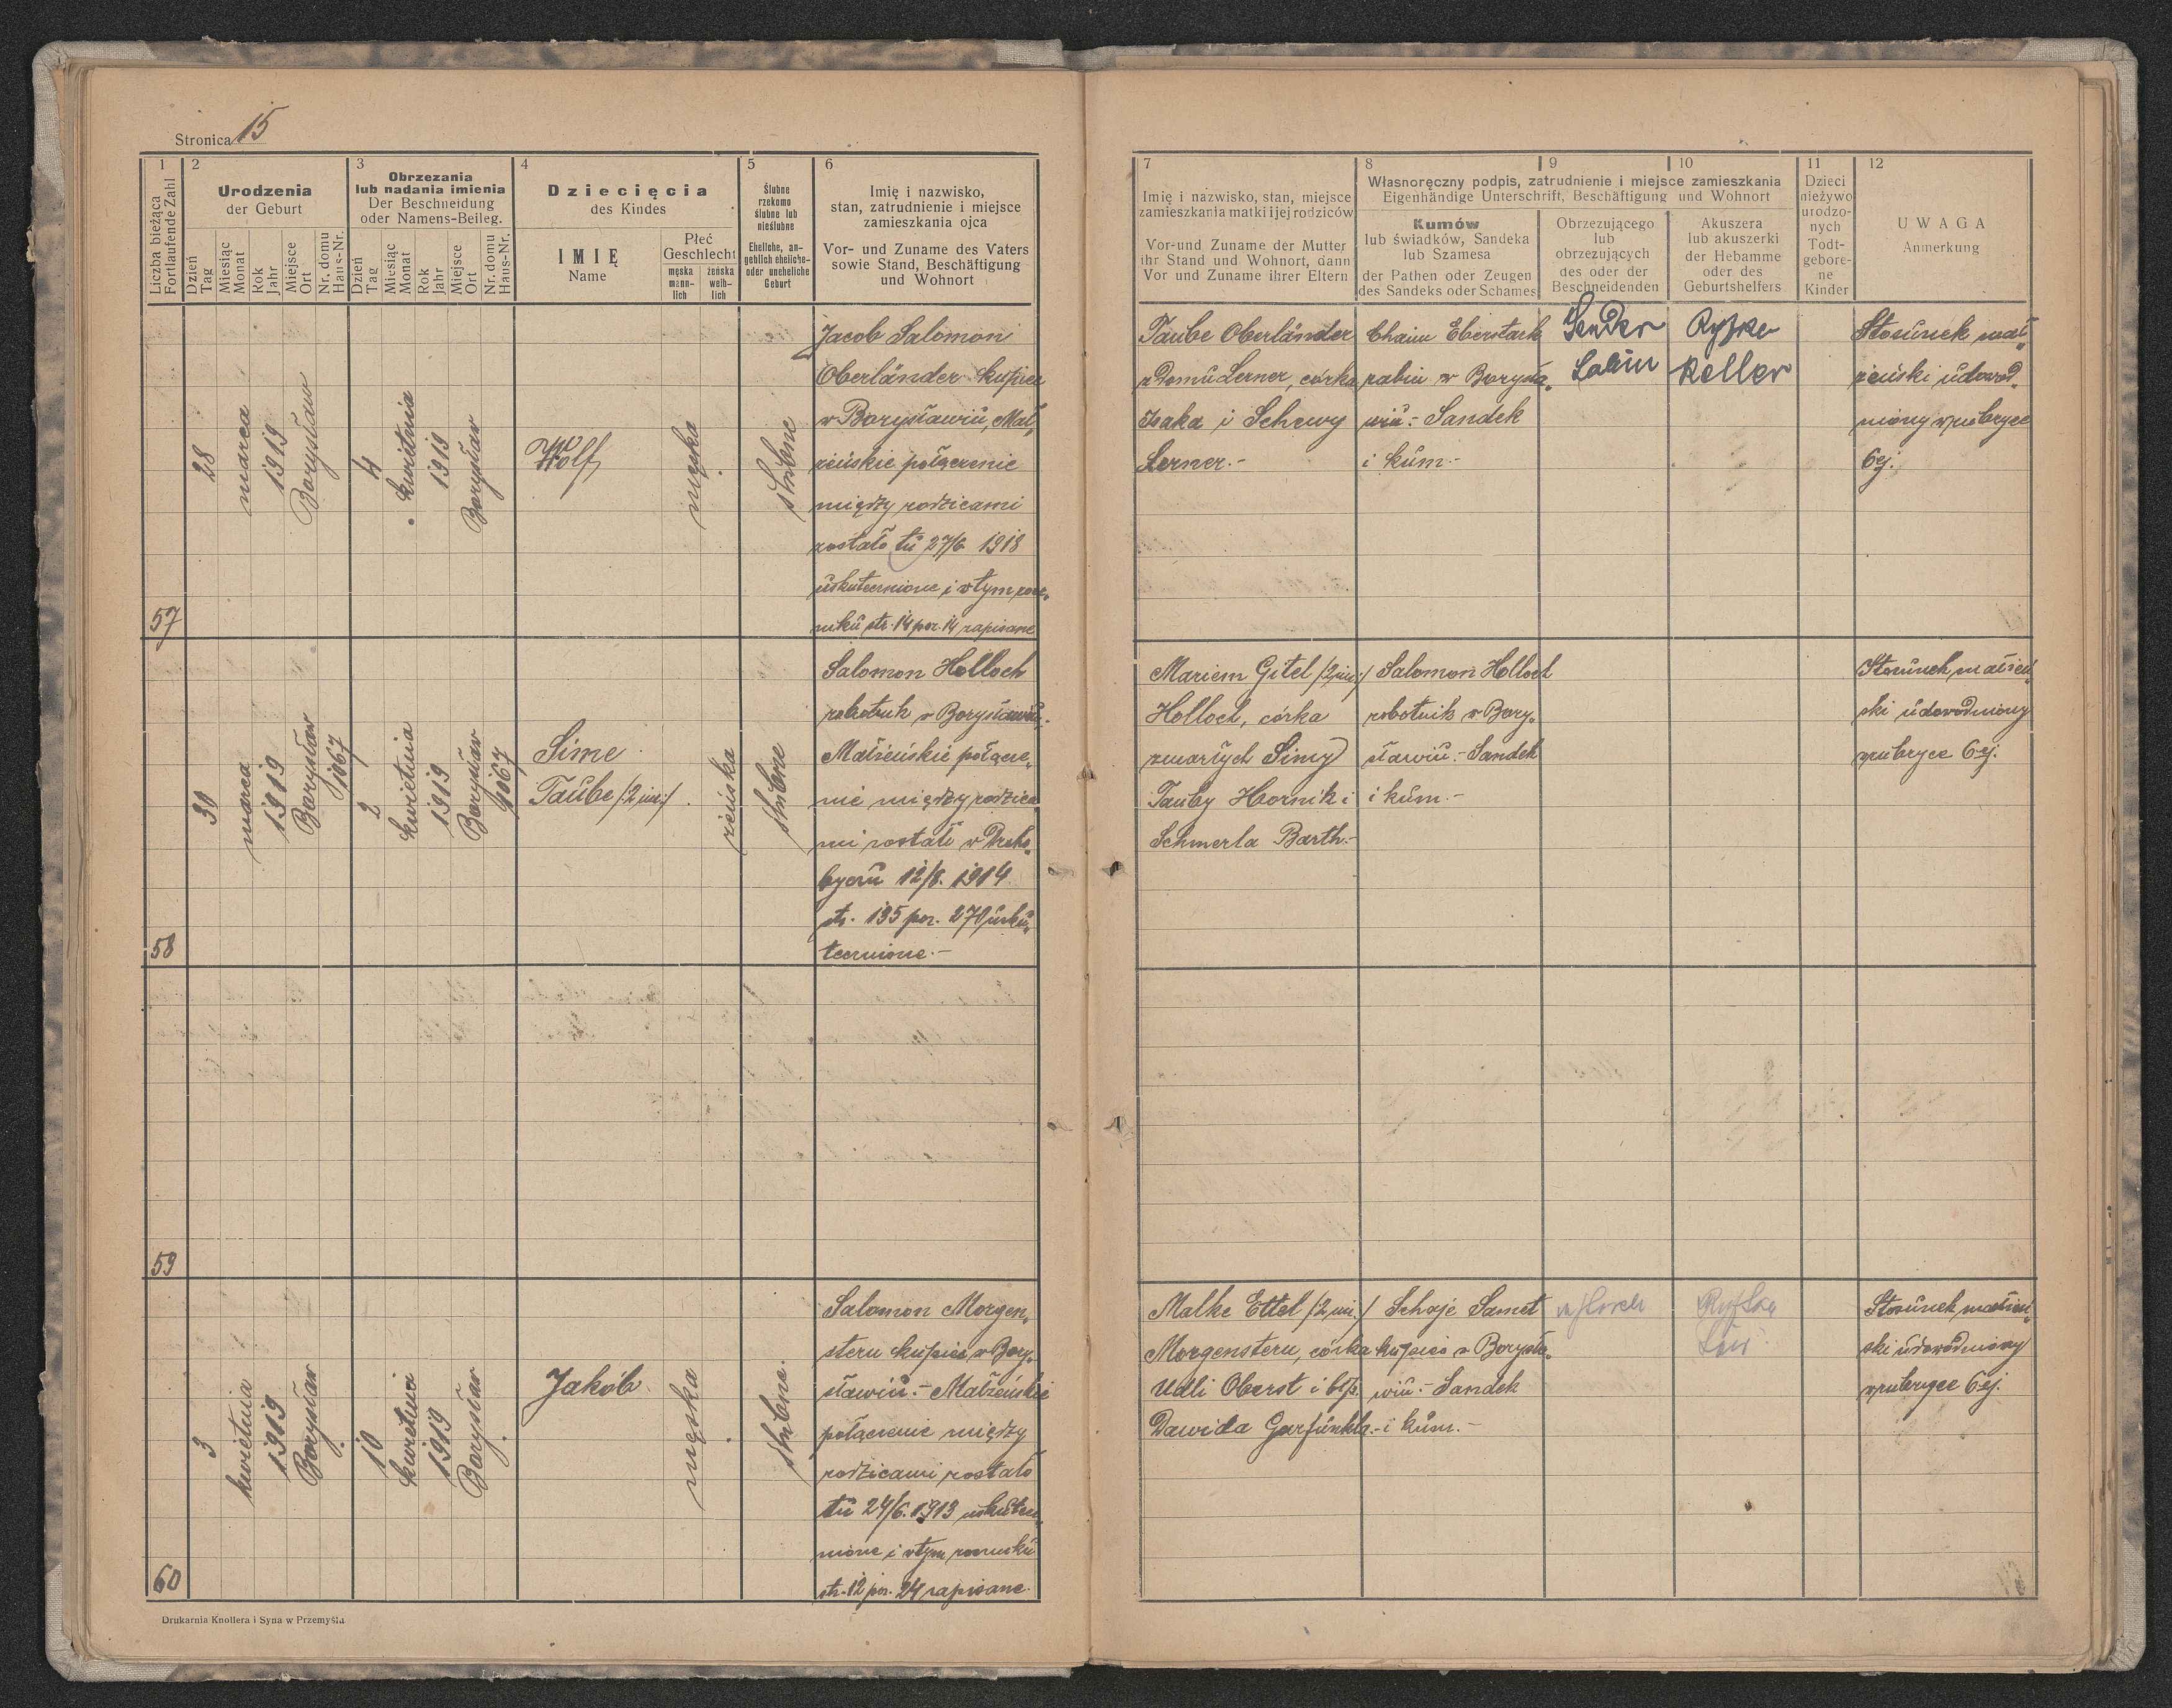 Stronica 15
1
2
3
4
5
6
Liczba bieżąca
Fortlaufende Zahl
Urodzenia
der Geburt
Obrzezania
lub nadania imienia
Der Beschneidung
oder Namens-Beileg.
Dziecięcia
des Kindes
Ślubne
rzekomo
ślubne lub
nieślubne
Eheliche, an-
geblich eheliche-
oder uneheliche
Geburt
Imię i nazwisko,
stan, zatrudnienie i miejsce
zamieszkania ojca
Vor- und Zuname des Vaters
sowie Stand, Beschäftigung
und Wohnort
Dzień
Tag
Miesiąc
Monat
Rok
Jahr
Miejsce
Ort
Nr. domu
Haus-Nr.
Dzień
Tag
Miesiąc
Monat
Rok
Jahr
Miejsce
Ort
Nr. domu
Haus-Nr.
IMIĘ
Name
Płeć
Geschlecht
męska
männ-
lich
żeńska
weib-
lich
57
28
marca
1919
Borysław
4
kwietnia
1919
Borysław
Wolf
męska
ślubne
Jacob Salomon
Oberländer kupiec
w Borysławiu, Mał„
żeńskie połączenie
między rodzicami
zostało tu 27/6 1918
uskutecznione i w tym rocz„
niku str. 14 poz. 14 zapisane
58
30
marca
1919
Borysław
1067
2
kwietnia
1919
Borysław
1067
Sime
Taube /2 im:/
żeńska
ślubne
Salomon Holloch
robotnik w Borysławiu.
Małżeńskie połącze„
nie między rodzica
mi zostało w Droho„
byczu 12/8. 1914
str. 135 poz. 270 usku„
tecznione.-
59
60
3
kwietnia
1919
Borysław
10
kwietnia
1919
Borysław
Jakób
męska
ślubne.
Salomon Morgen„
stern kupiec w Bory„
sławiu.- Małżeńskie
połączenie między
rodzicami zostało
tu 24/6. 1913 uskutecz„
nione i w tym roczniku
str. 12 poz. 24 zapisane.
Drukarnia Knollera i Syna w Przemyślu
7
8
9
10
11
12
Imię i nazwisko, stan, miejsce
zamieszkania matki i jej rodziców
Vor-und Zuname der Mutter
ihr Stand und Wohnort, dann
Vor und Zuname ihrer Eltern
Własnoręczny podpis, zatrudnienie i miejsce zamieszkania
Eigenhändige Unterschrift, Beschäftigung und Wohnort
Kumów
lub świadków, Sandeka
lub Szamesa
der Pathen oder Zeugen
des Sandeks oder Schames
Obrzezującego
lub
obrzezujących
des oder der
Beschneidenden
Akuszera
lub akuszerki
der Hebamme
oder des
Geburtshelfers
Dzieci
nieżywo
urodzo-
nych
Todt-
gebore-
ne
Kinder
UWAGA
Anmerkung
Taube Oberländer
z domu Lerner, córka
Isaka i Schewy
Lerner.-
Chaim Eberstark
rabin w Borysła„
wiu.- Sandek
i kum.-
Sender
Ryfke
Keller
Stosunek mał„
żeński udowod„
niony w rubryce
6ej.
Mariem Gitel /2 im:/
Holloch, córka
zmarłych Simy
Tauby Hornik i
Schmerla Barth.-
Salomon Holloch
robotnik w Bory„
sławiu.- Sandek
i kum.-
Stosunek małżeń„
ski udowodniony
w rubryce 6ej.
Malke Ettel /2 im./
Morgenstern, córka
Udli Oberst i błp.
Dawida Garfunkla.-
Schaje Samet
kupiec w Borysła„
wiu.- Sandek
i kum.-
Ryfke
Stosunek małżeń„
ski udowodniony
w rubryce 6ej.